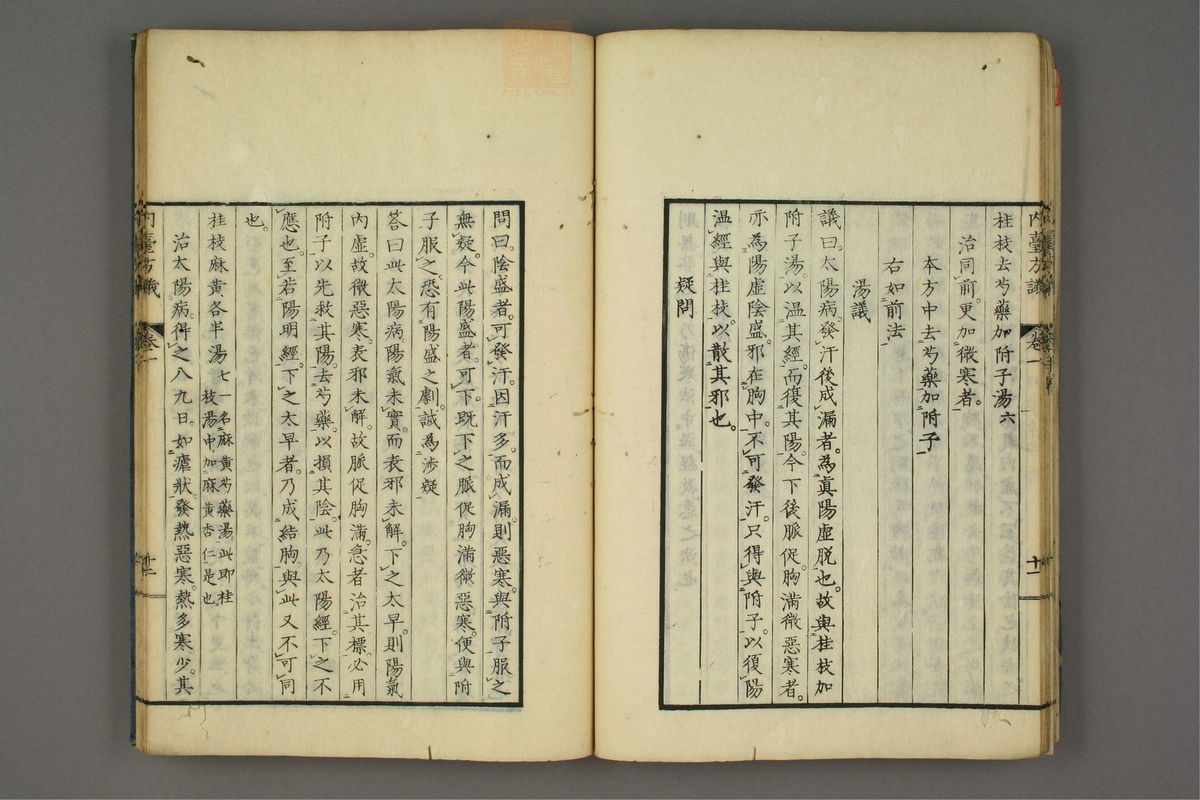 桂枝去芍藥加附子湯六
治同前。更加微寒者。
本方中去芍藥加附子
右如前法
湯議
議曰。太陽病。發汗後成漏者。為真陽虛脱也。故與桂枝加
附子湯。以温其經。而復其陽。今下後脈促。胸滿微惡寒者。
亦為陽虛陰盛。邪在胸中。不可發汗。只得與附子。以復陽
温經。與桂枝。以散其邪也。
疑問
內臺方議
卷一
十一
問曰。陰盛者。可發汗。因汗多。而成漏。則惡寒。與附子服之
無疑。今此陽盛者。可下。既下之脈促胸滿微惡寒。便與附
子服之。恐有陽盛之劇。誠為渉疑
答曰此太陽病。陽氣未實。而表邪未解。下之太早。則陽氣
內虛。故微惡寒。表邪未解。故脈促胸滿。急者治其標。必用
附子以先救其陽。去芍藥。以損其陰。此乃太陽經。下之不
應也。至若陽明經。下之太早者。乃成結胸。與此又不可同
也。
桂枝麻黄各半湯七一名麻黄芍藥湯。此即桂
枝湯中加麻黄杏仁是也
治太陽病。得之八九日。如瘧狀。發熱惡寒。熱多寒少。其
內臺方議
卷一